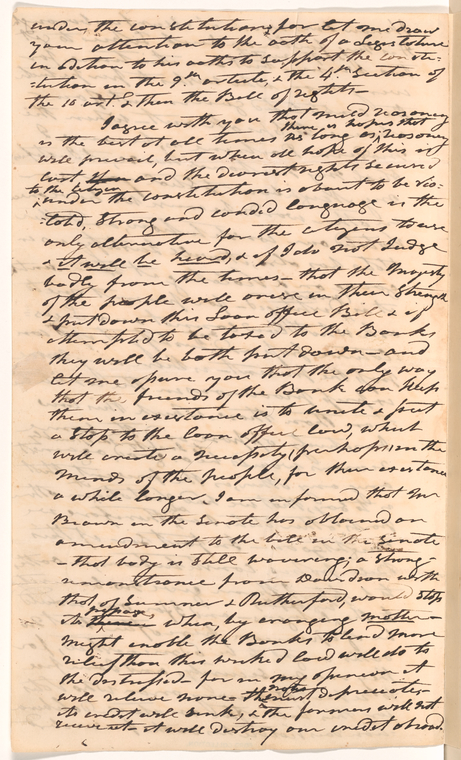 under the constitution, for let me draw
your attention to the oath of a Legislature
in addition to his oaths to support the consti-
-tution in the 9th article, & the 4th Section of
the 10 art. & then the Bill of rights—
I agree with you that mild reasoning
there is hopes that
is the best at all times as long as, reasoning
will prevail, but when all hope of this is
lost and the dearest rights secured
to the citizen
under the constitution is about to be vio-
-lated, Strong and candid language is the
only alternative for the citizens to use
& it will be heard, & if I do not Judge
badly from the times— that the Majority
of the people will arise in their Strength
& put down this Loan office Bill & if
attempted to be taxed to the Banks
they will be both put down— and
let me assure you that the only way
that the friends of the Bank can keep
them in existance is to unite & put
a stop to the loan office law, which
will create a necessity (perhaps) in the
minds of the people, for their existance
a while longer, I am informed that Mr
Brown in the Senate has obtained an
amendment to the bill in the Senate
— that body is still wavering, a Strong—
remonstrance from Davidson with
that of Sumner & Rutherford, would Stop
its passage when, by arranging matters—
might enable the Banks to lend more
relief than this wicked law will do to
the distressed— for in my opinion it
will relieve none— the notes must depreciate,—
its credit will sink, & the farmers will not
receive it— it will destroy our credit abroad.